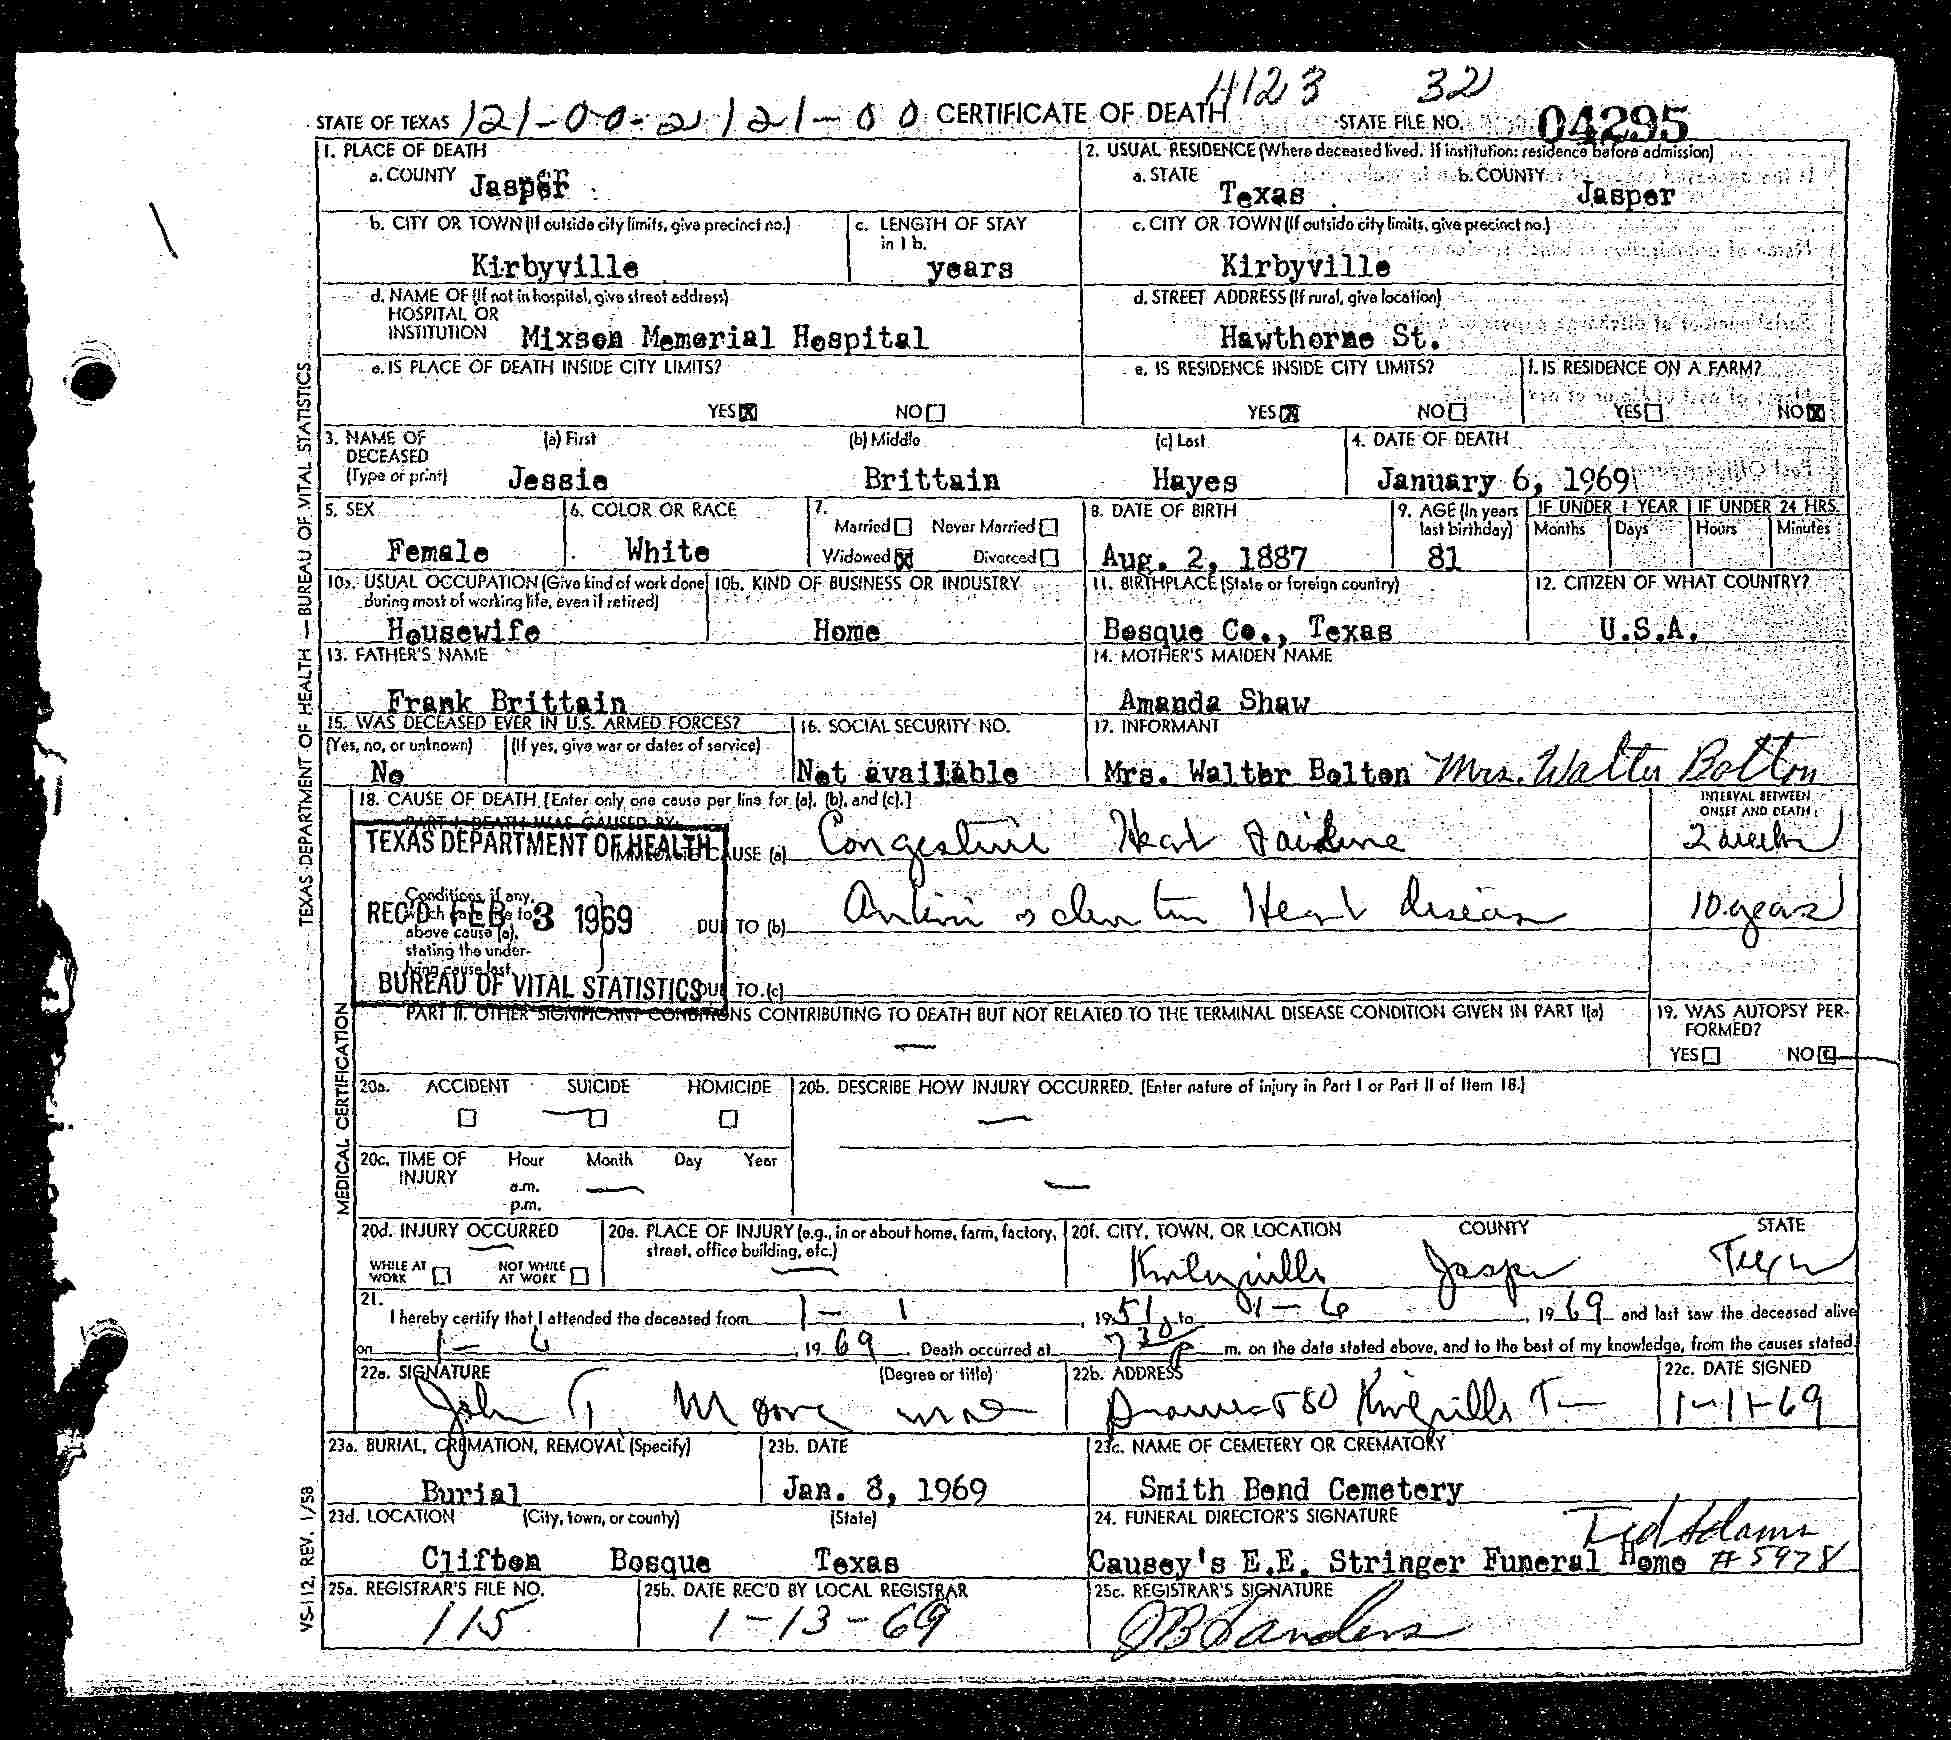 4123 32
STATE OF TEXAS 121-00-2 121-00 CERTIFICATE OF DEATH STATE FILE NO. 04295
1. PLACE OF DEATH
a. COUNTY Jasper
2. USUAL RESIDENCE (Where deceased lived. If institution: residence before admission)
a. STATE Texas b. COUNTY Jasper
b. CITY OR TOWN (If outside city limits, give precinct no.) Kirbyville
c. LENGTH OF STAY in 1 b. years
c. CITY OR TOWN (If outside city limits, give precinct no.) Kirbyville
d. NAME OF (If not in hospital, give street address)
HOSPITAL OR
INSTITUTION Mixson Memorial Hospital
d. STREET ADDRESS (If rural, give location)
Hawthorne St.
e. IS PLACE OF DEATH INSIDE CITY LIMITS?
YES X NO
e. IS RESIDENCE INSIDE CITY LIMITS?
YES X NO
f. IS RESIDENCE ON A FARM?
YES NO X
3. NAME OF DECEASED (Type or print)
(a) First Jessie
(b) Middle Brittain
(c) Last Hayes
4. DATE OF DEATH
January 6, 1969
5. SEX
Female
6. COLOR OR RACE
White
7.
Married Never Married
Widowed X Divorced
8. DATE OF BIRTH
Aug. 2, 1887
9. AGE (In years last birthday)
81
IF UNDER 1 YEAR
Months Days
IF UNDER 24 HRS.
Hours Minutes
10a. USUAL OCCUPATION (Give kind of work done during most of working life, even if retired)
Housewife
10b. KIND OF BUSINESS OR INDUSTRY
Home
11. BIRTHPLACE (State or foreign country)
Bosque Co., Texas
12. CITIZEN OF WHAT COUNTRY?
U.S.A.
13. FATHER'S NAME
Frank Brittain
14. MOTHER'S MAIDEN NAME
Amanda Shaw
15. WAS DECEASED EVER IN U.S. ARMED FORCES?
(Yes, no, or unknown) (If yes, give war or dates of service)
No
16. SOCIAL SECURITY NO.
Not available
17. INFORMANT
Mrs. Walter Bolton Mrs. Walter Bolton
18. CAUSE OF DEATH [Enter only one cause per line for (a), (b), and (c).]
INTERVAL BETWEEN ONSET AND DEATH
PART I. DEATH WAS CAUSED BY:
IMMEDIATE CAUSE (a) Congestive Heart Failure 2 weeks
Conditions, if any, which gave rise to above cause (a), stating the underlying cause last.
TEXAS DEPARTMENT OF HEALTH
REC'D FEB 3 1969
BUREAU OF VITAL STATISTICS
DUE TO (b) Arteriosclerotic Heart disease 10 years
DUE TO (c)
PART II. OTHER SIGNIFICANT CONDITIONS CONTRIBUTING TO DEATH BUT NOT RELATED TO THE TERMINAL DISEASE CONDITION GIVEN IN PART I(a)
—
19. WAS AUTOPSY PERFORMED?
YES NO
20a. ACCIDENT SUICIDE HOMICIDE
—
20b. DESCRIBE HOW INJURY OCCURRED. (Enter nature of injury in Part I or Part II of Item 18.)
—
20c. TIME OF INJURY Hour Month Day Year
a.m.
p.m. —
—
20d. INJURY OCCURRED
—
WHILE AT WORK NOT WHILE AT WORK
20e. PLACE OF INJURY (e.g., in or about home, farm, factory, street, office building, etc.)
—
20f. CITY, TOWN, OR LOCATION COUNTY STATE
Kirbyville Jasper Texas
21.
I hereby certify that I attended the deceased from 1-1, 1951, to 1-6, 1969 and last saw the deceased alive
on 1-6, 1969. Death occurred at 7 30 P m. on the date stated above, and to the best of my knowledge, from the causes stated.
22a. SIGNATURE (Degree or title)
John T. Moore
22b. ADDRESS
Kirbyville
22c. DATE SIGNED
1-11-69
23a. BURIAL, CREMATION, REMOVAL (Specify)
Burial
23b. DATE
Jan. 8, 1969
23c. NAME OF CEMETERY OR CREMATORY
Smith Bend Cemetery
23d. LOCATION (City, town, or county) (State)
Clifton Bosque Texas
24. FUNERAL DIRECTOR'S SIGNATURE
Ted Adams
Causey's E.E. Stringer Funeral Home #5978
25a. REGISTRAR'S FILE NO.
115
25b. DATE REC'D BY LOCAL REGISTRAR
1-13-69
25c. REGISTRAR'S SIGNATURE
JB Sanders
TEXAS DEPARTMENT OF HEALTH — BUREAU OF VITAL STATISTICS
MEDICAL CERTIFICATION
VS-112, REV. 1/58